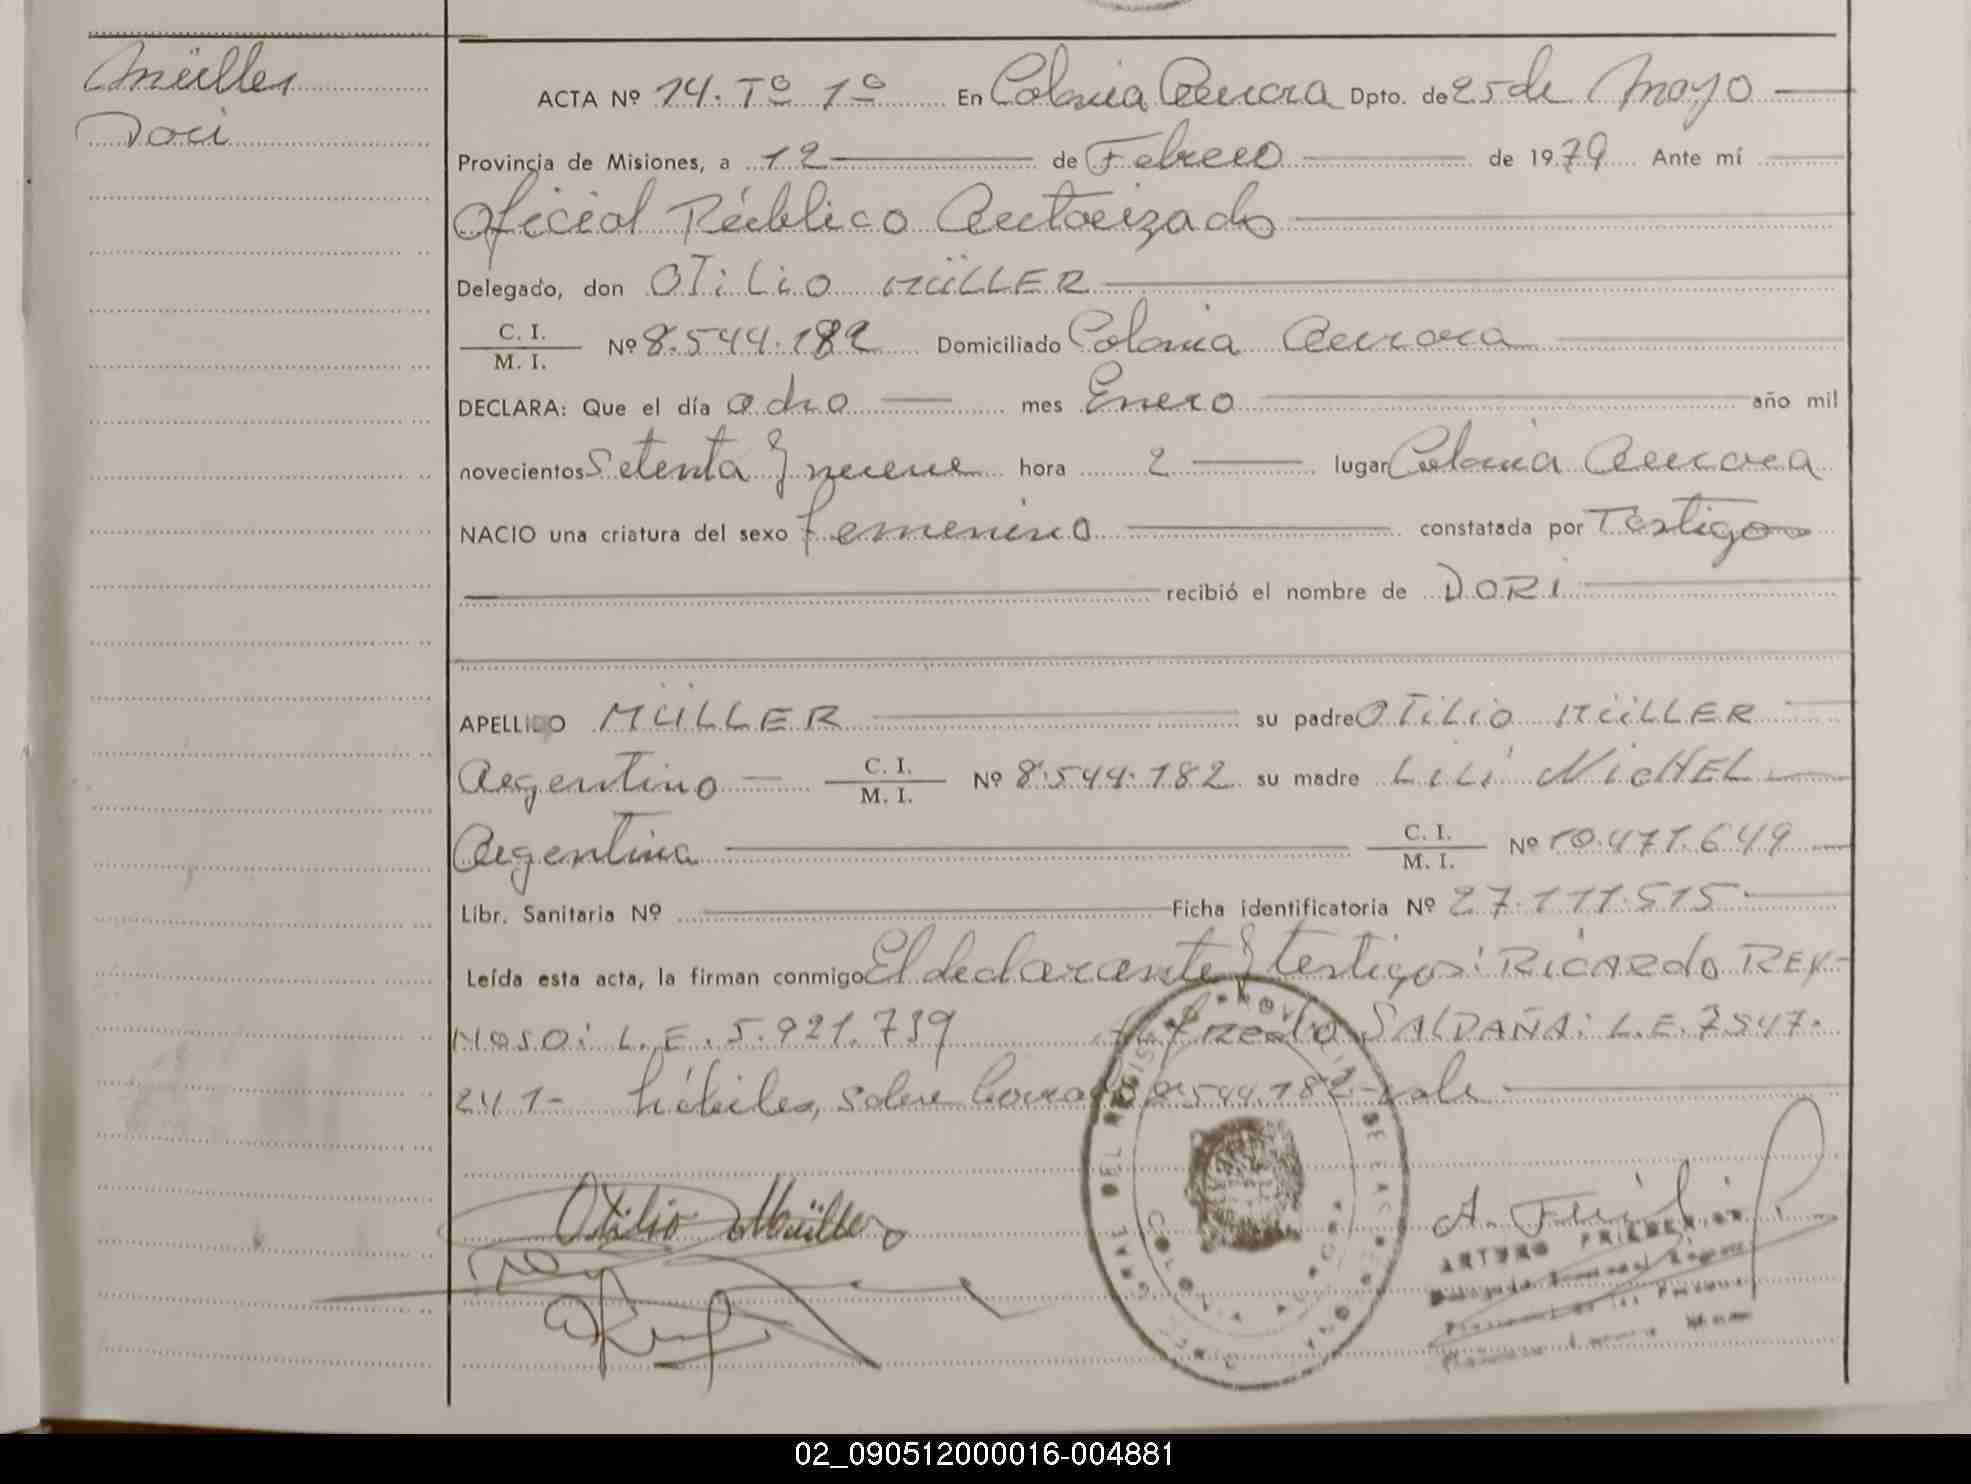 Müller
Dori
ACTA Nº 14. Tº 1º En Colonia Aurora Dpto. de 25 de Mayo
Provincia de Misiones, a 12 de Febrero de 1979 Ante mí
Oficial Público Autorizado
Delegado, don OTiLiO MÜLLER
C. I.
M. I. Nº 8.544.182 Domiciliado Colonia Aurora
DECLARA: Que el día ocho mes Enero año mil
novecientos Setenta y nueve hora 2 lugar Colonia Aurora
NACIO una criatura del sexo femenino constatada por Testigos
recibió el nombre de DORi
APELLIDO MÜLLER su padre OTiLiO MÜLLER
Argentino C. I.
M. I. Nº 8.544.182 su madre LiLi MicHEL
Argentina C. I.
M. I. Nº 10.471.649
Libr. Sanitaria Nº Ficha identificatoria Nº 27.111.515
Leída esta acta, la firman conmigo El declarante y testigos: RicARdo REY-
NOSO: L.E. 5.921.739 Alfredo SALDAÑA: L.E. 7547.
241- hábiles, sobre borrado 8.544.182 - vale
Otilio Müller
A. Friedrich
ARTURO FRIEDRICH
02_090512000016-004881